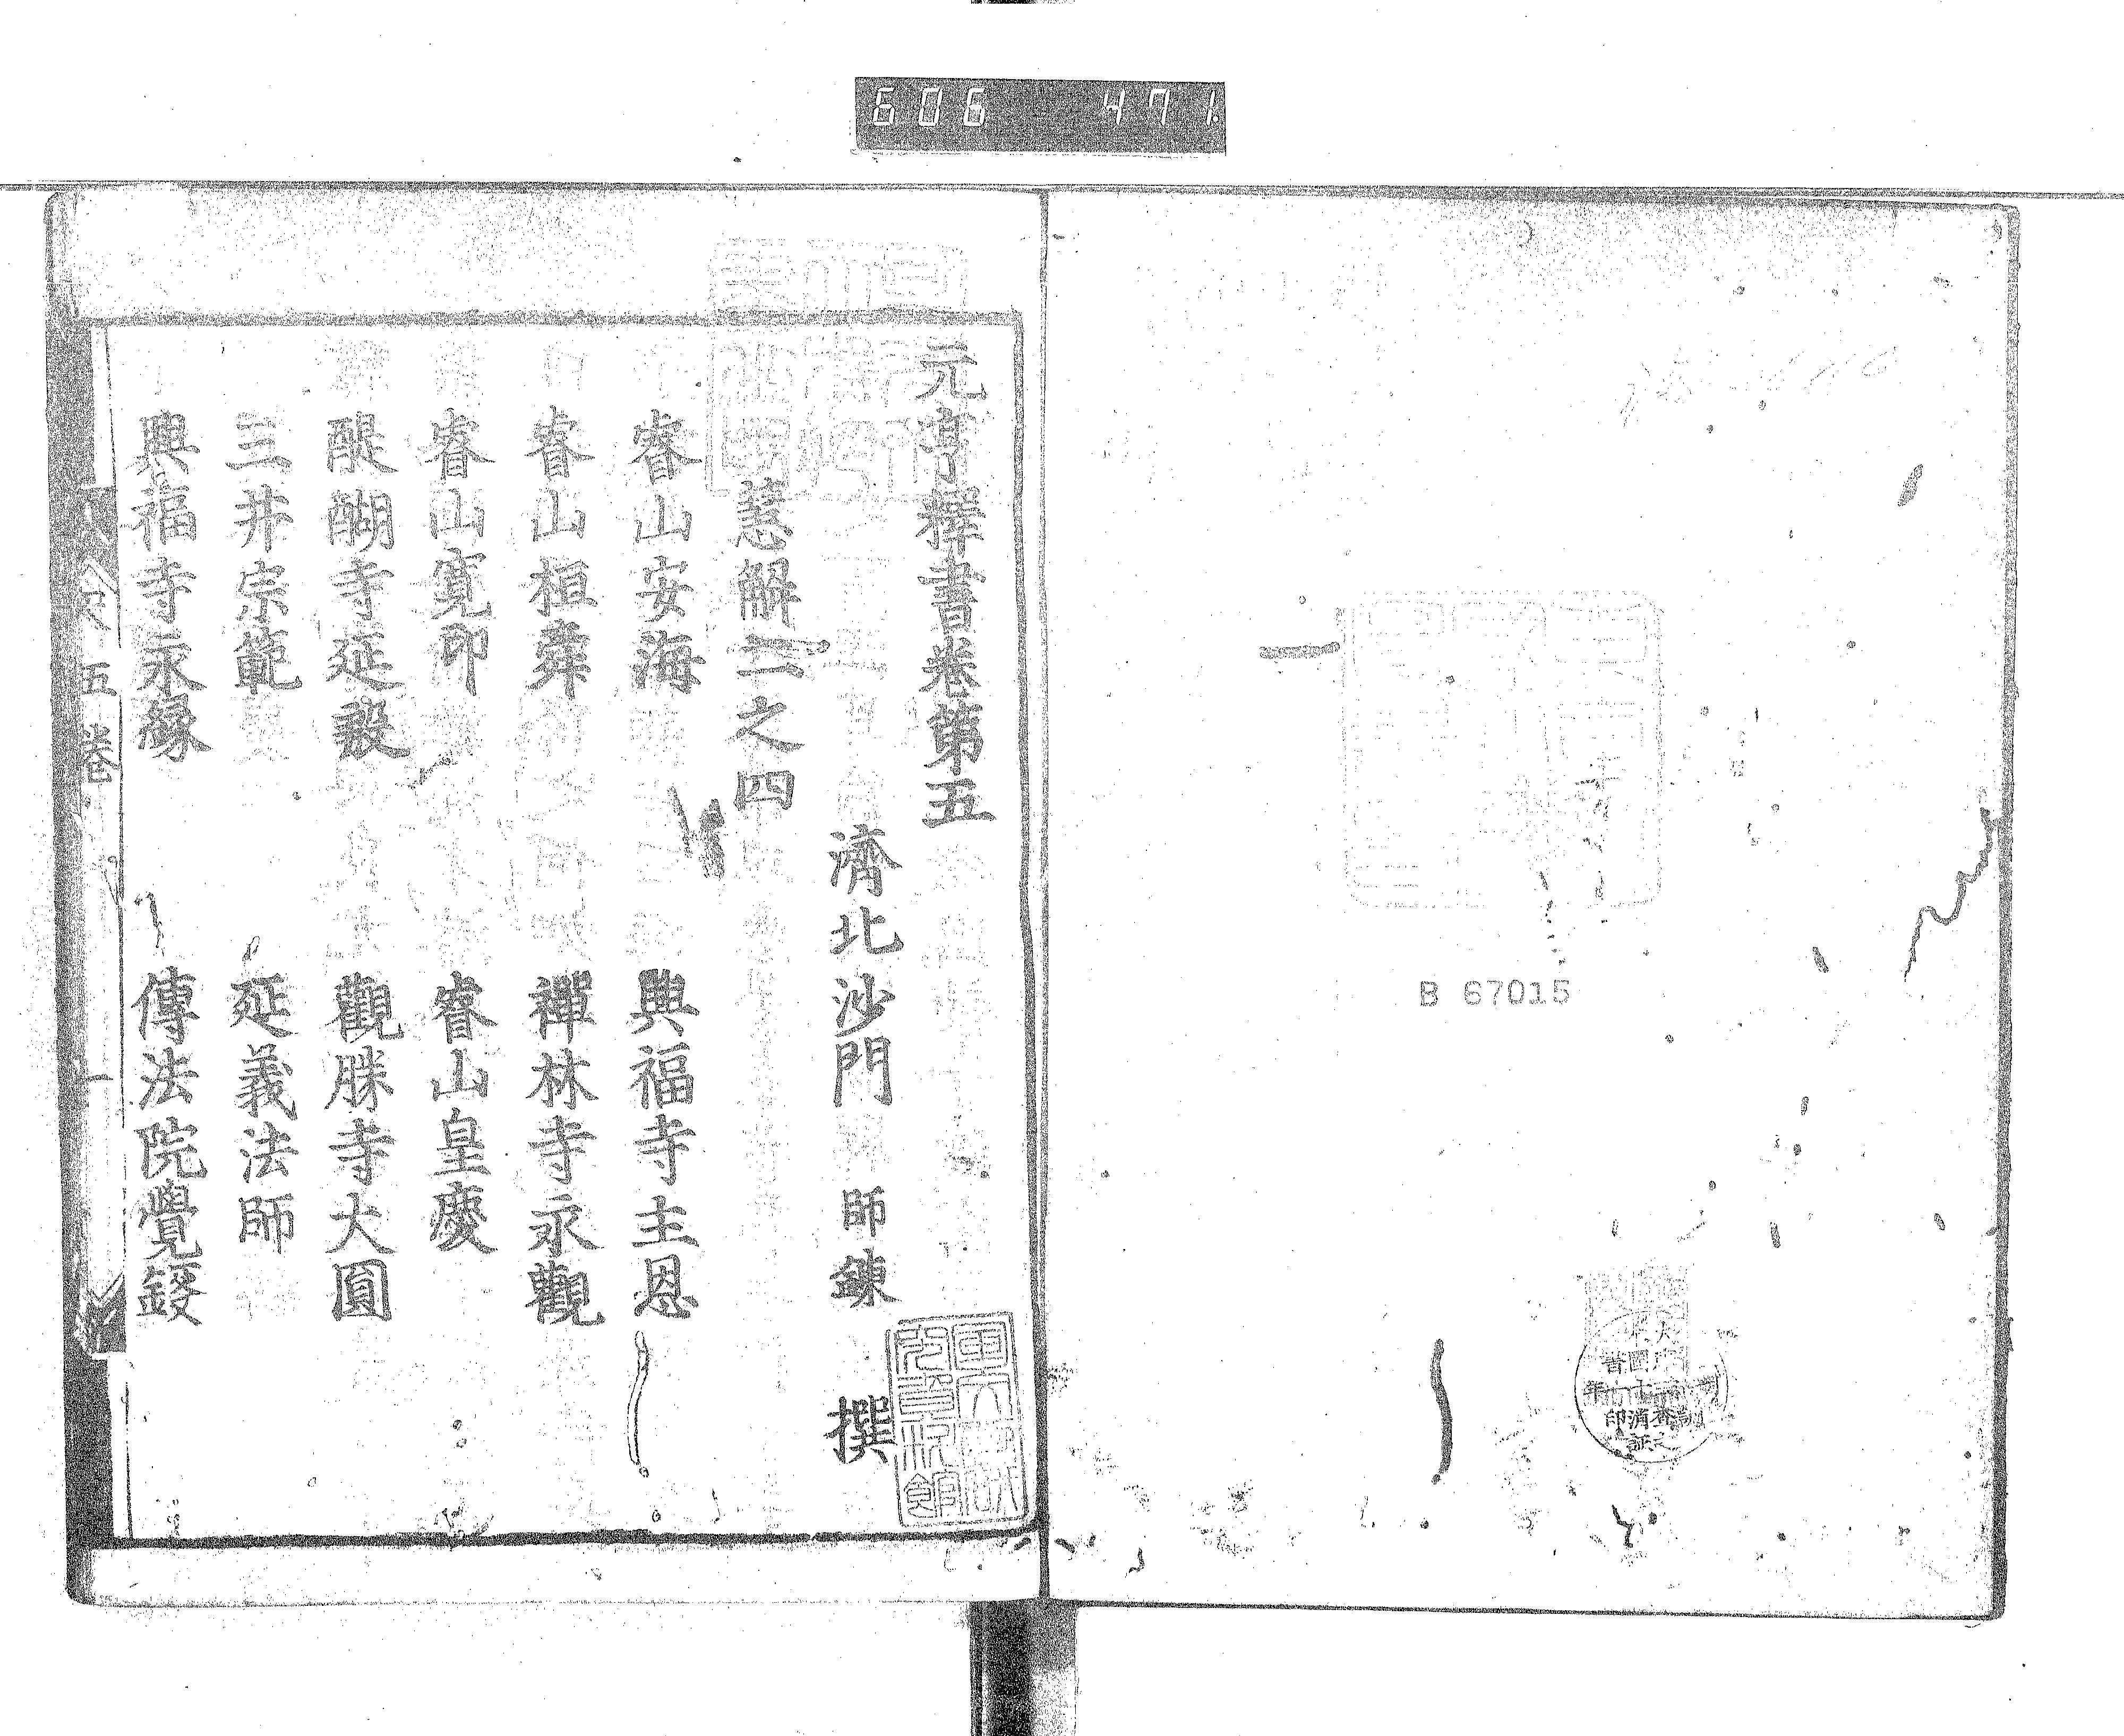 606 471
B 67015
元亨釋書卷第五
濟北沙門 師錬 撰
慧解二之四
睿山安海 興福寺主恩
睿山桓舜 禪林寺永觀
睿山寛印 睿山皇慶
醍醐寺延殷 觀勝寺大圓
三井宗範 延義法師
興福寺永縁 傳法院覺鑁
五卷 一